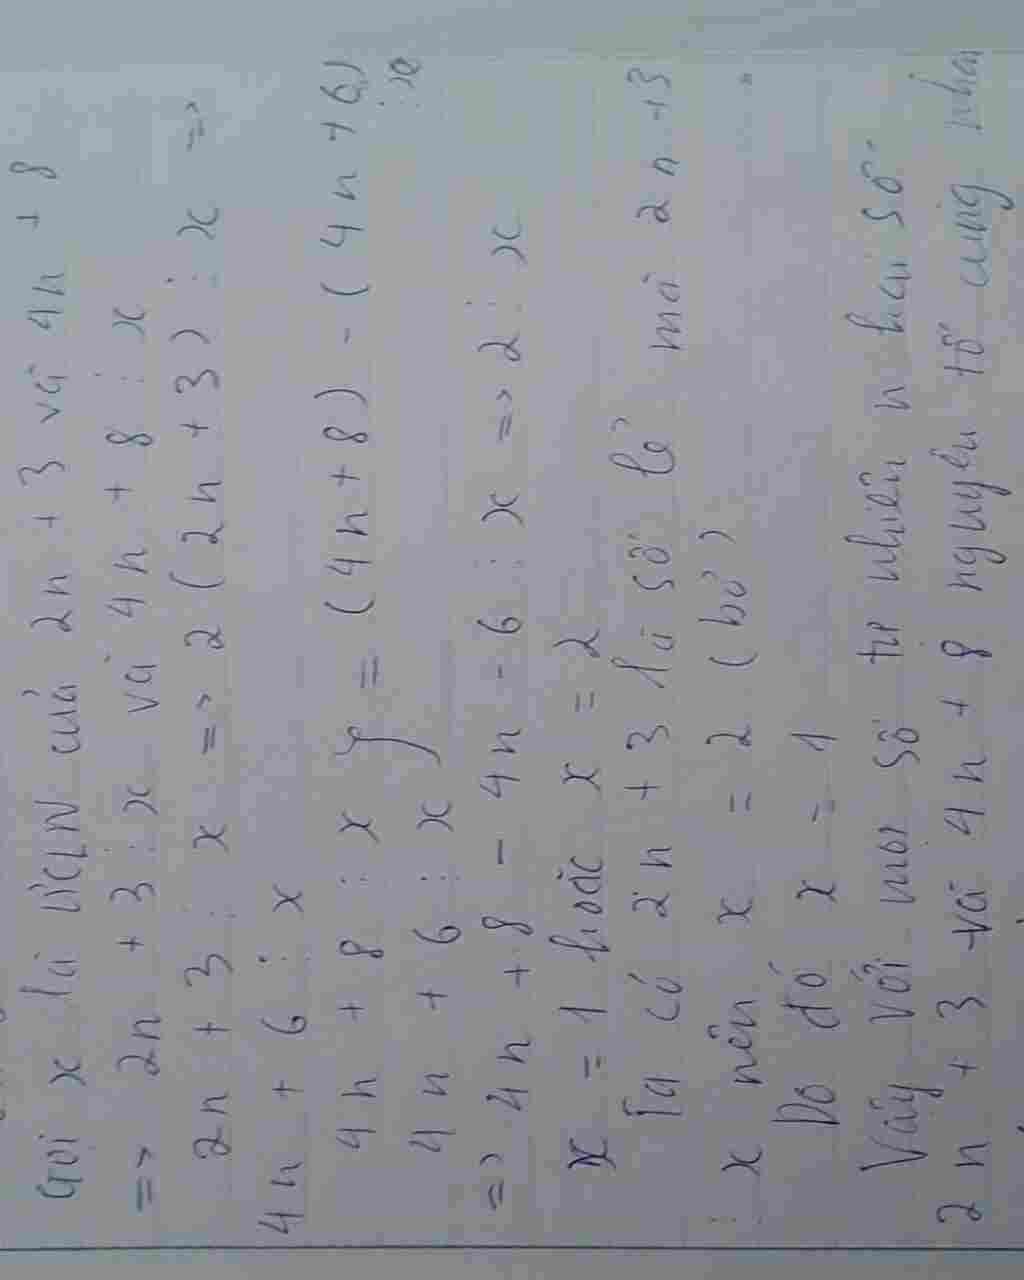 Gọi x là ƯCLN của 2n + 3 và 4n + 8
=> 2n + 3 ⋮ x và 4n + 8 ⋮ x
2n + 3 ⋮ x => 2 ( 2n + 3 ) ⋮ x =>
4n + 6 ⋮ x
4n + 8 ⋮ x } = (4n + 8) - ( 4n + 6)
4n + 6 ⋮ x ⋮ x
=> 4n + 8 - 4n - 6 ⋮ x => 2 ⋮ x
x = 1 hoặc x = 2
Ta có 2n + 3 là số lẻ mà 2n + 3
⋮ x nên x = 2 ( bỏ )
Do đó x = 1
Vậy với mọi số tự nhiên n hai số
2n + 3 và 4n + 8 nguyên tố cùng nhau